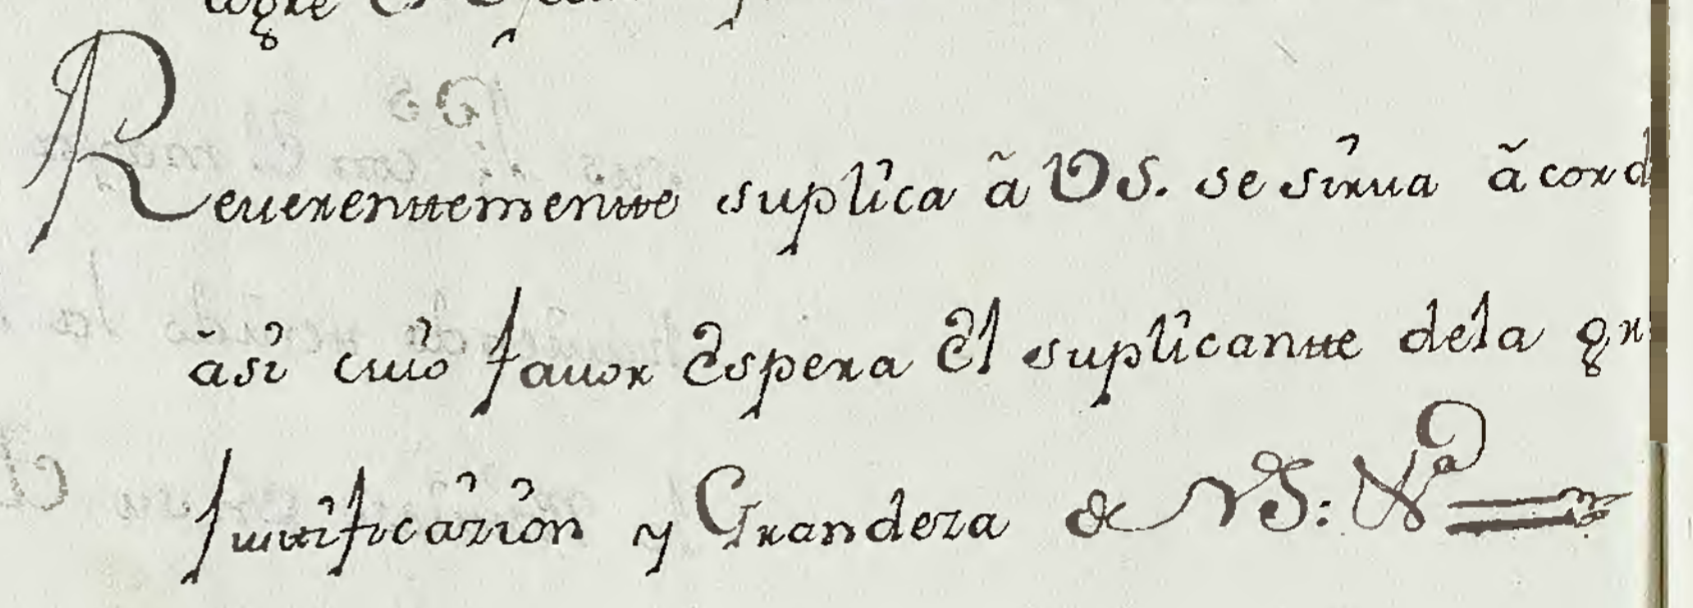 logre El
Reuerenttementte suplica â VS. se sirua âcord
âsi cuio fauor Espera El suplicantte dela gr
Justtificazion y Grandeza de VS: Nª